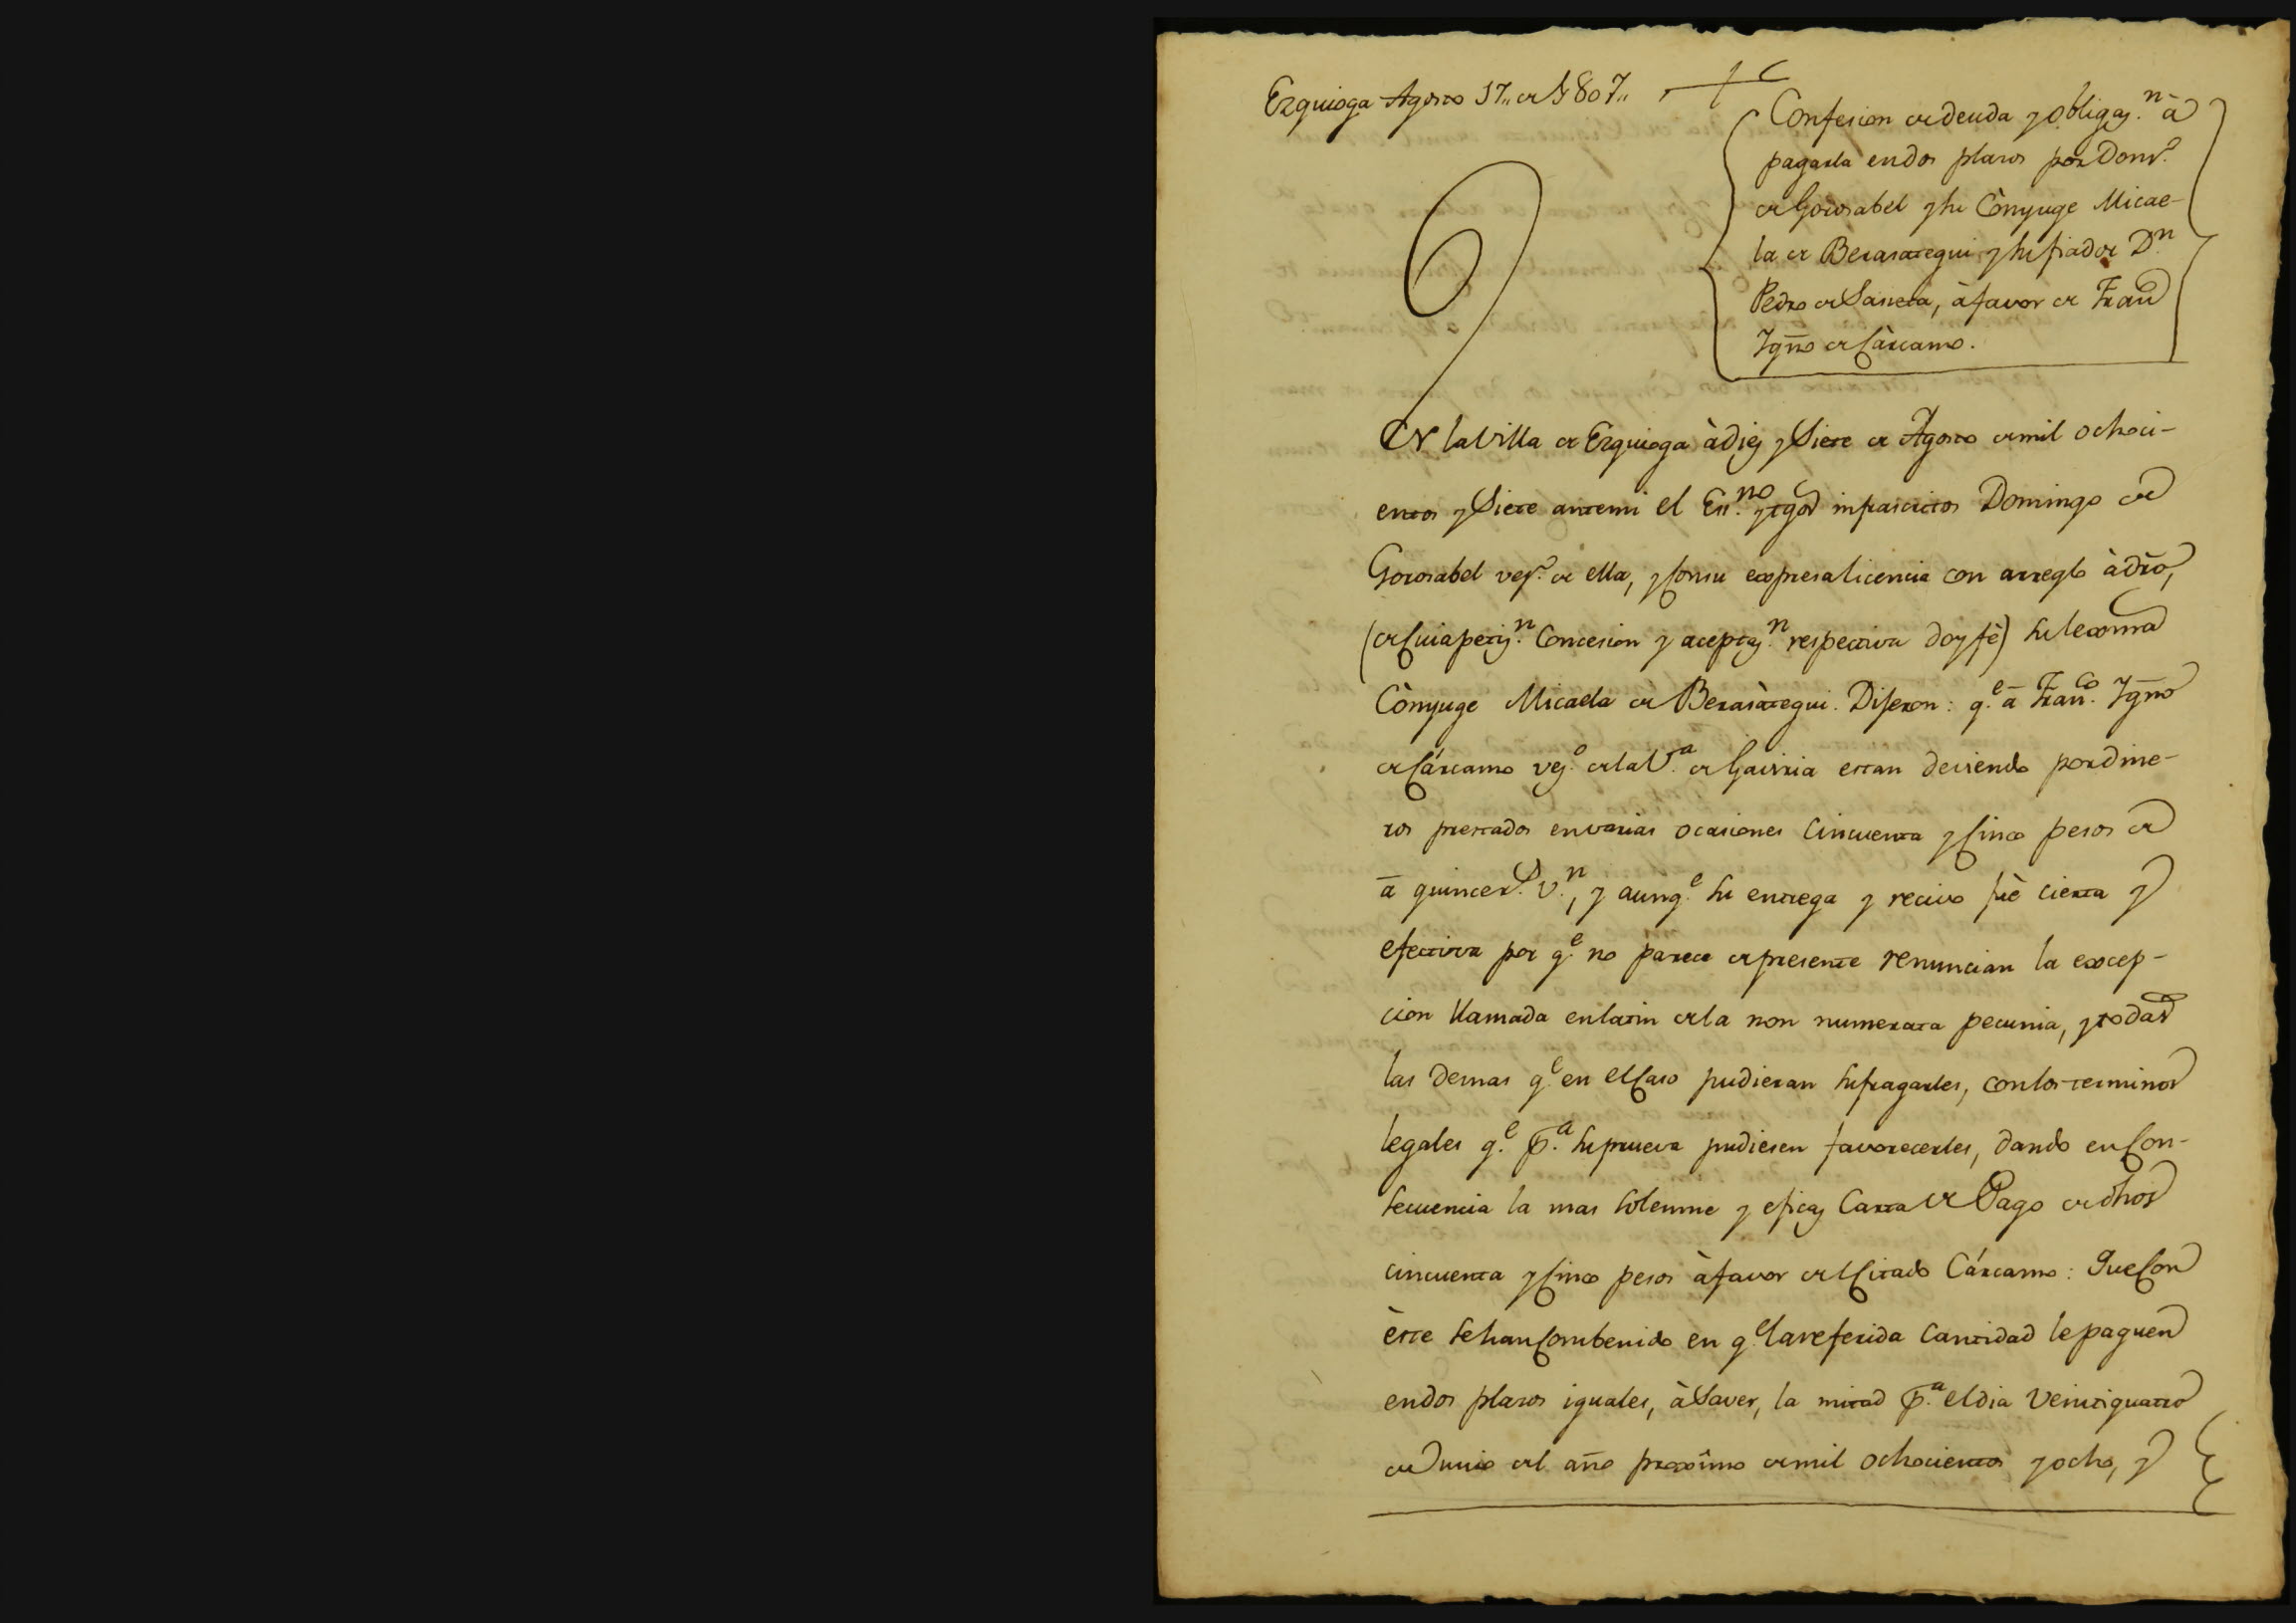 Ezquioga Agosto 17,, de 1807,,
Confesion de deuda y obligaz.n à
pagarla en dos plazos por Dom.o
de Gorosabel y su Cònyuge Micae-
la de Berasategui y su fiador D.n
Pedro de Sarieta, à favor de Fran
Ygño de Càrcamo.
EN la Villa de Ezquioga à diez y Siete de Agosto de mil ochoci-
entos y Siete ante mi el Ess.no y tgos infrascritos Domingo de
Gorosabel vez.o de ella, y con su expresa licencia con arreglo à dro,
(de cuia petiz.n Concesion y aceptaz.n respectiva doy fè) su lexma
Cònyuge Micaela de Berasàtegui. Dijeron: q.e a Fran.co Ygño
de Cárcamo vez.o de la V.a de Gaviria estan deviendo por dine-
ros prestados en varias ocasiones Cincuenta y Cinco pesos de
a quince r.s v.n, y aunq.e su entrega y recivo fuè cierta y
efectiva por q.e no parece de presente renuncian la excep-
cion llamada en latin de la non numerata pecunia, y todas
las demas q.e en el Caso pudieran sufragarles, con los terminos
legales q.e p.a su prueva pudiesen favorecerles, dando en Con-
secuencia la mas solemne y eficaz Carta de Pago de dhos
cincuenta y Cinco pesos à favor del Citado Cárcamo: Que Con
èste se han Combenido en q.e la referida Cantidad le paguen
en dos plazos iguales, à Saver, la mitad p.a el dia Veintiquatro
de Junio del año proximo de mil ochocientos y ocho, y